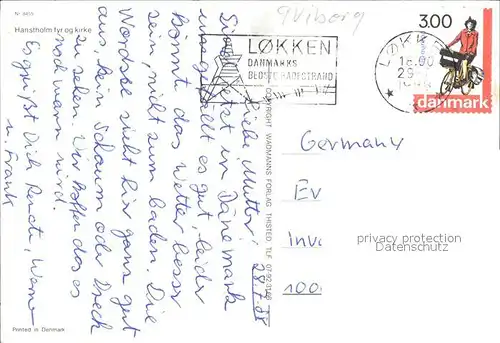 Nr 8455
Hanstholm fyr og kirke
9 Viborg
LØKKEN
DANMARKS
BEDSTE BADESTRAND
LØKK
29
3.00
danmark
28.7.88
Liebe Mutter!
sind jetzt in Dänemark
uns gefällt es gut, leider
kommt das Wetter besser
sein, nicht zum baden. Die
Nordsee sieht hier ganz gut
aus, kein Schaum oder Dreck
zu sehen. Wir hoffen das es
noch warm wird.
Es grüßt Dich Renate, Werner
u. Frank
COPYRIGHT WADMANNS FORLAG THISTED TLF. 07-92
Germany
Ev
Inv
100
privacy protection
Datenschutz
Printed in Denmark